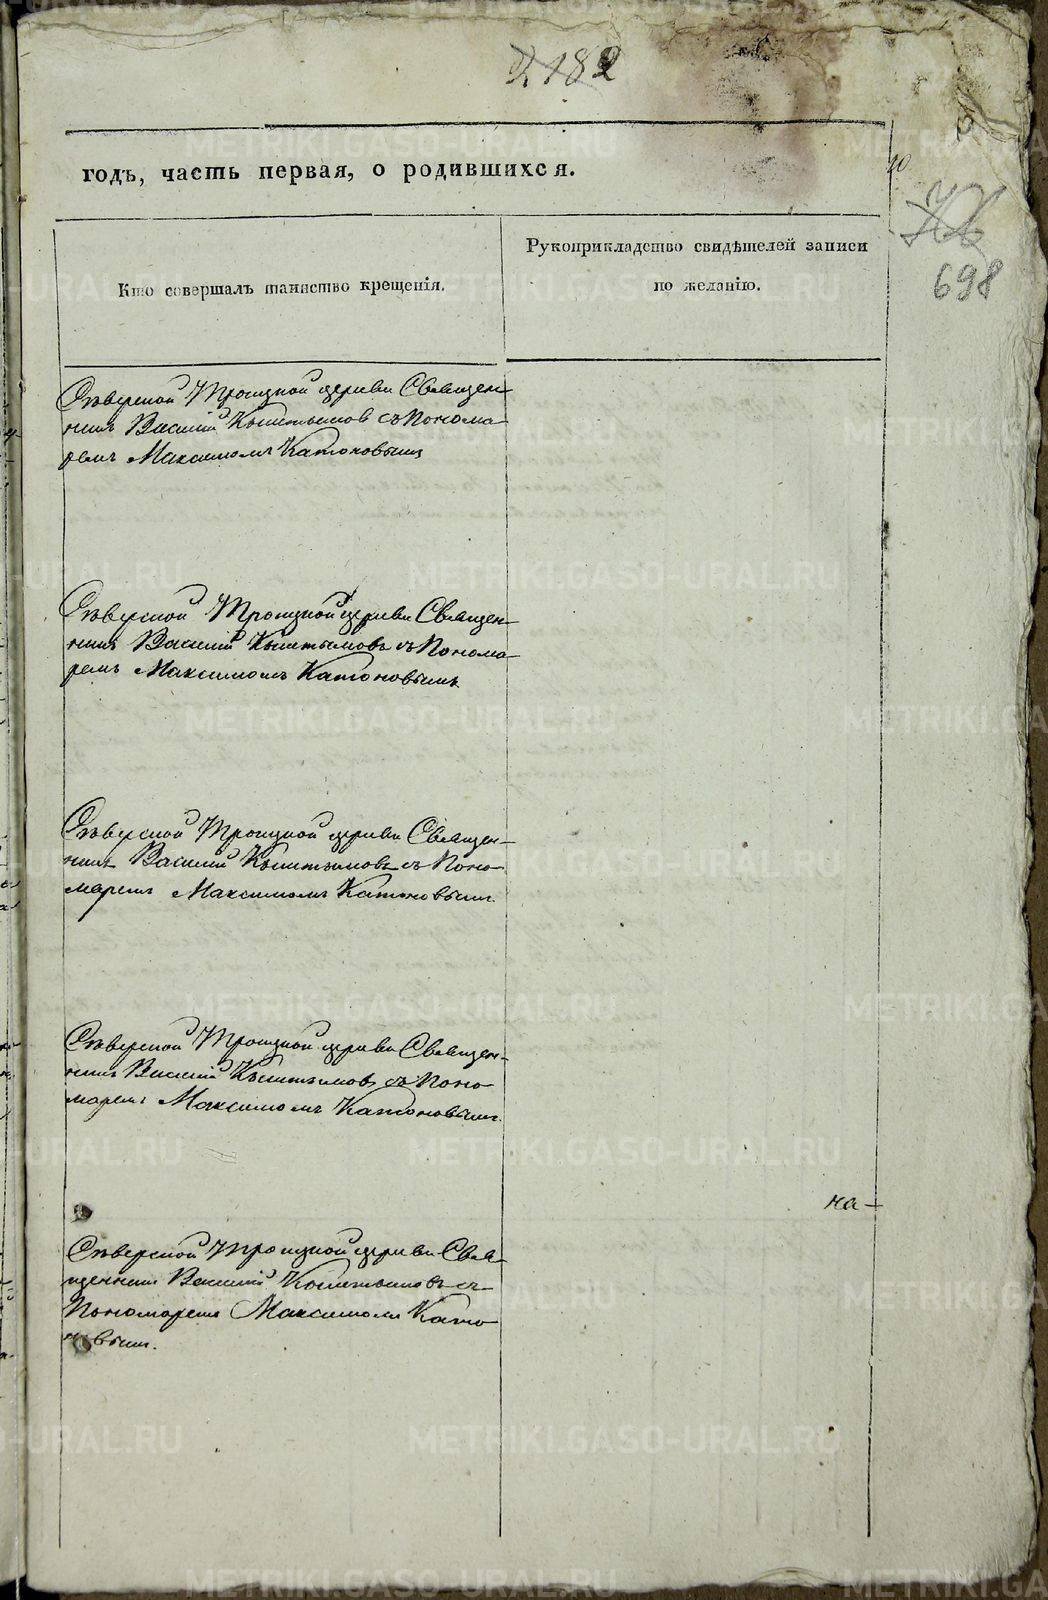 182
годъ, часть первая, о родившихся.
10
698
Кто совершалъ таинство крещенія.
Рукоприкладство свидѣтелей записи
по желанію.
Сѣверской Троицкой церкви Священ-
никъ Василій Кыштымов съ Понома-
ремъ Максимомъ Катоновымъ
Сѣверской Троицкой церкви Священ-
никъ Василій Кыштымовъ съ Понома-
ремъ Максимомъ Катоновымъ
Сѣверской Троицкой церкви Священ-
никъ Василій Кыштымовъ съ Поно-
маремъ Максимомъ Катоновымъ.
Сѣверской Троицкой церкви Священ-
никъ Василій Кыштымовъ съ Поно-
маремъ Максимомъ Катоновымъ.
на-
Сѣверской Троицкой церкви Свя-
щенникъ Василій Кыштымовъ съ
Пономаремъ Максимомъ Като-
новымъ.
METRIKI.GASO-URAL.RU